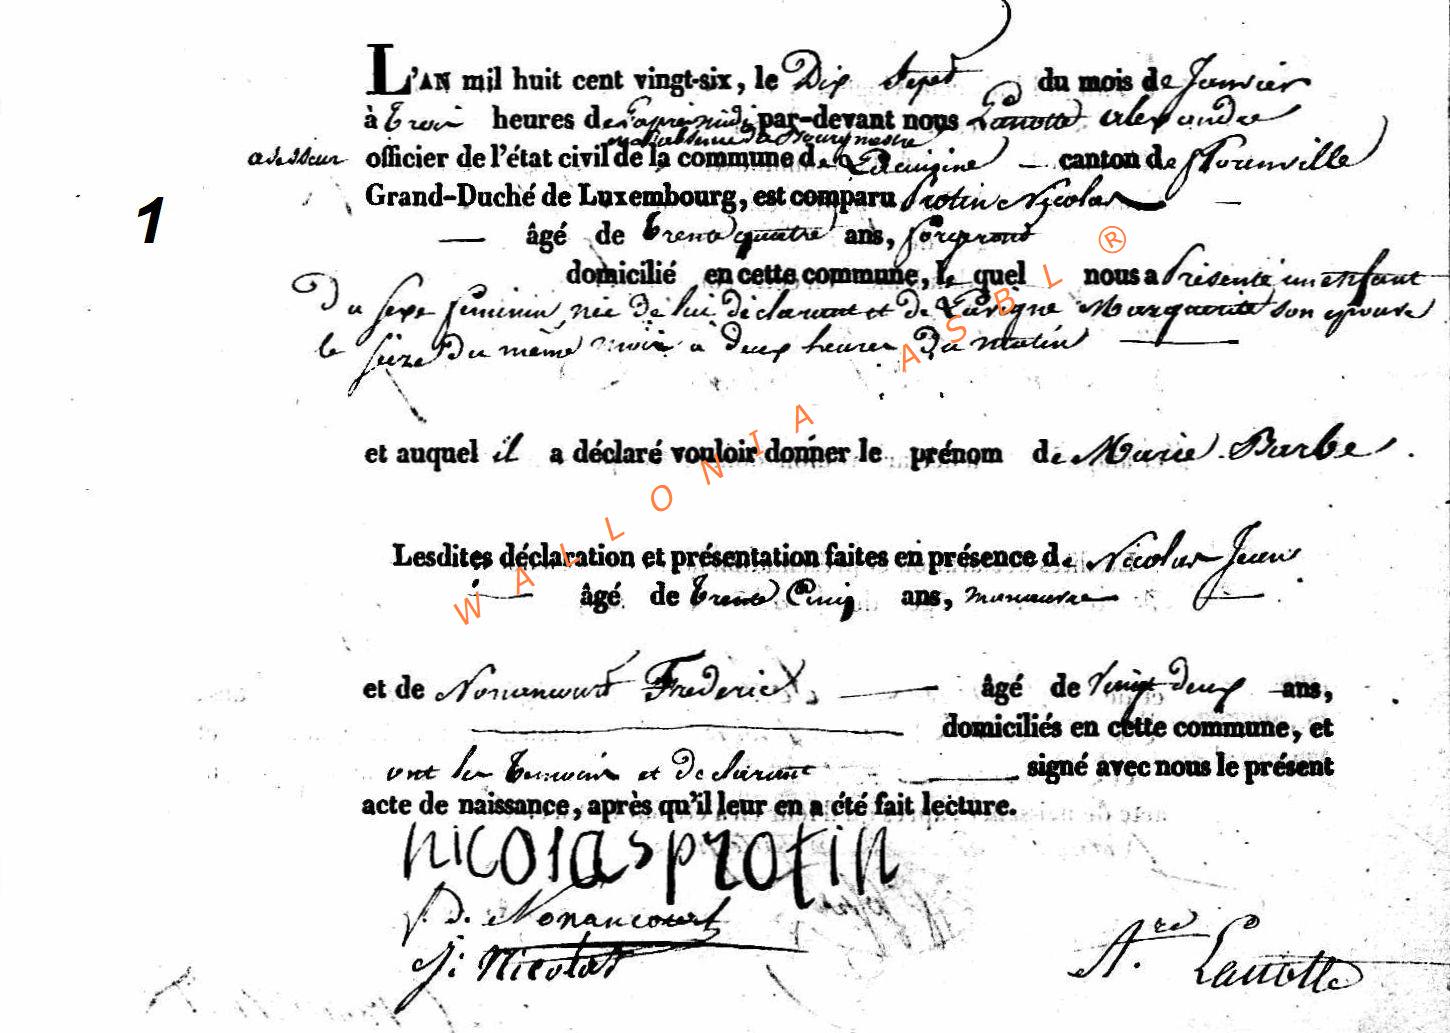 L'AN mil huit cent vingt-six, le Dix Sept du mois de Janvier
à trois heures de l'apres midi par-devant nous Lanotte alexandre
en l'absence du Bourgmestre
assesseur officier de l'état civil de la commune de canton de florenville
Grand-Duché de Luxembourg, est comparu Protin Nicolas
1
âgé de trente quatre ans, forgeront
domicilié en cette commune, le quel nous a Présenté un enfant
Du sexe feminin, née de lui déclarant et de Lavigne Marguerite son epouse
le seize du même mois à deux heures Du matin
et auquel il a déclaré vouloir donner le prénom de Marie Barbe.
Lesdites déclaration et présentation faites en présence de Nicolas Jean
âgé de trente Cinq ans, manœuvre
et de Nonancourt Frederick âgé de vingt deux ans,
domiciliés en cette commune, et
ont les temoins et declarant signé avec nous le présent
acte de naissance, après qu'il leur en a été fait lecture.
nicolas protin
f. D. Nonancourt
J: Nicolas
A.re Lanotte
WALLONIA ASBL ®